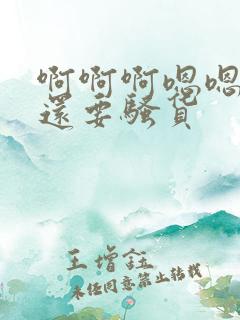 啊啊啊嗯嗯
還要騷貨
王增鈺
未经同意禁止转载